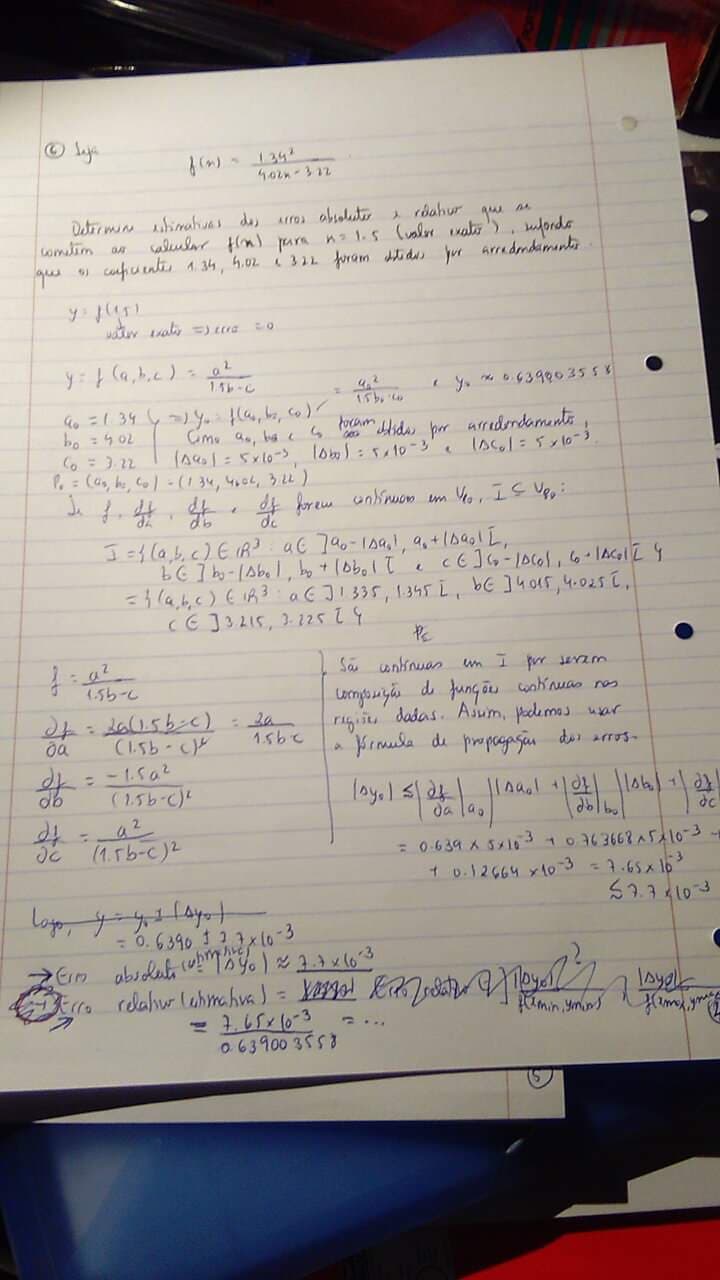 ⑥ Seja
f(x) = 1.34² / 4.02x - 3.22
Determine estimativas dos erros absolutos e relativos que se
cometem ao calcular f(x) para x = 1.5 (valor exato), supondo
que os coeficientes 1.34, 4.02 e 3.22 foram obtidos por arredondamento.
y = f(1.5)
valor exato => erro = 0
y = f(a, b, c) = a² / 1.5b - c = a₀² / 1.5b₀ - c₀ e y₀ ≈ 0.639003558
a₀ = 1.34 => y₀ = f(a₀, b₀, c₀)
b₀ = 4.02 Como a₀, b₀ e c₀ foram obtidos por arredondamento,
c₀ = 3.22 |Δa₀| = 5×10⁻³, |Δb₀| = 5×10⁻³ e |Δc₀| = 5×10⁻³.
P₀ = (a₀, b₀, c₀) = (1.34, 4.02, 3.22)
Se f, ∂f/∂a, ∂f/∂b e ∂f/∂c forem contínuas em V_P₀, I ⊆ V_P₀:
I = {(a, b, c) ∈ ℝ³ : a ∈ ]a₀ - |Δa₀|, a₀ + |Δa₀|[,
b ∈ ]b₀ - |Δb₀|, b₀ + |Δb₀|[ e c ∈ ]c₀ - |Δc₀|, c₀ + |Δc₀|[}
= {(a, b, c) ∈ ℝ³ : a ∈ ]1.335, 1.345[, b ∈ ]4.015, 4.025[,
c ∈ ]3.215, 3.225[}
f = a² / 1.5b - c
∂f/∂a = 2a(1.5b - c) / (1.5b - c)² = 2a / 1.5b - c
∂f/∂b = -1.5a² / (1.5b - c)²
∂f/∂c = a² / (1.5b - c)²
São contínuas em I por serem
composição de funções contínuas nas
regiões dadas. Assim, podemos usar
a fórmula de propagação dos erros.
|Δy₀| ≤ |∂f/∂a|a₀ |Δa₀| + |∂f/∂b|b₀ |Δb₀| + |∂f/∂c
= 0.639 × 5×10⁻³ + 0.763668 × 5×10⁻³ +
+ 0.12664 × 10⁻³ = 7.65×10⁻³
≤ 7.7×10⁻³
Logo, y = y₀ ± |Δy₀|
= 0.6390 ± 7.7×10⁻³
→ Erro absoluto (estimativa) = |Δy₀| ≈ 7.7×10⁻³
Erro relativo (estimativa) =
= 7.65×10⁻³ / 0.639003558 = ...
5